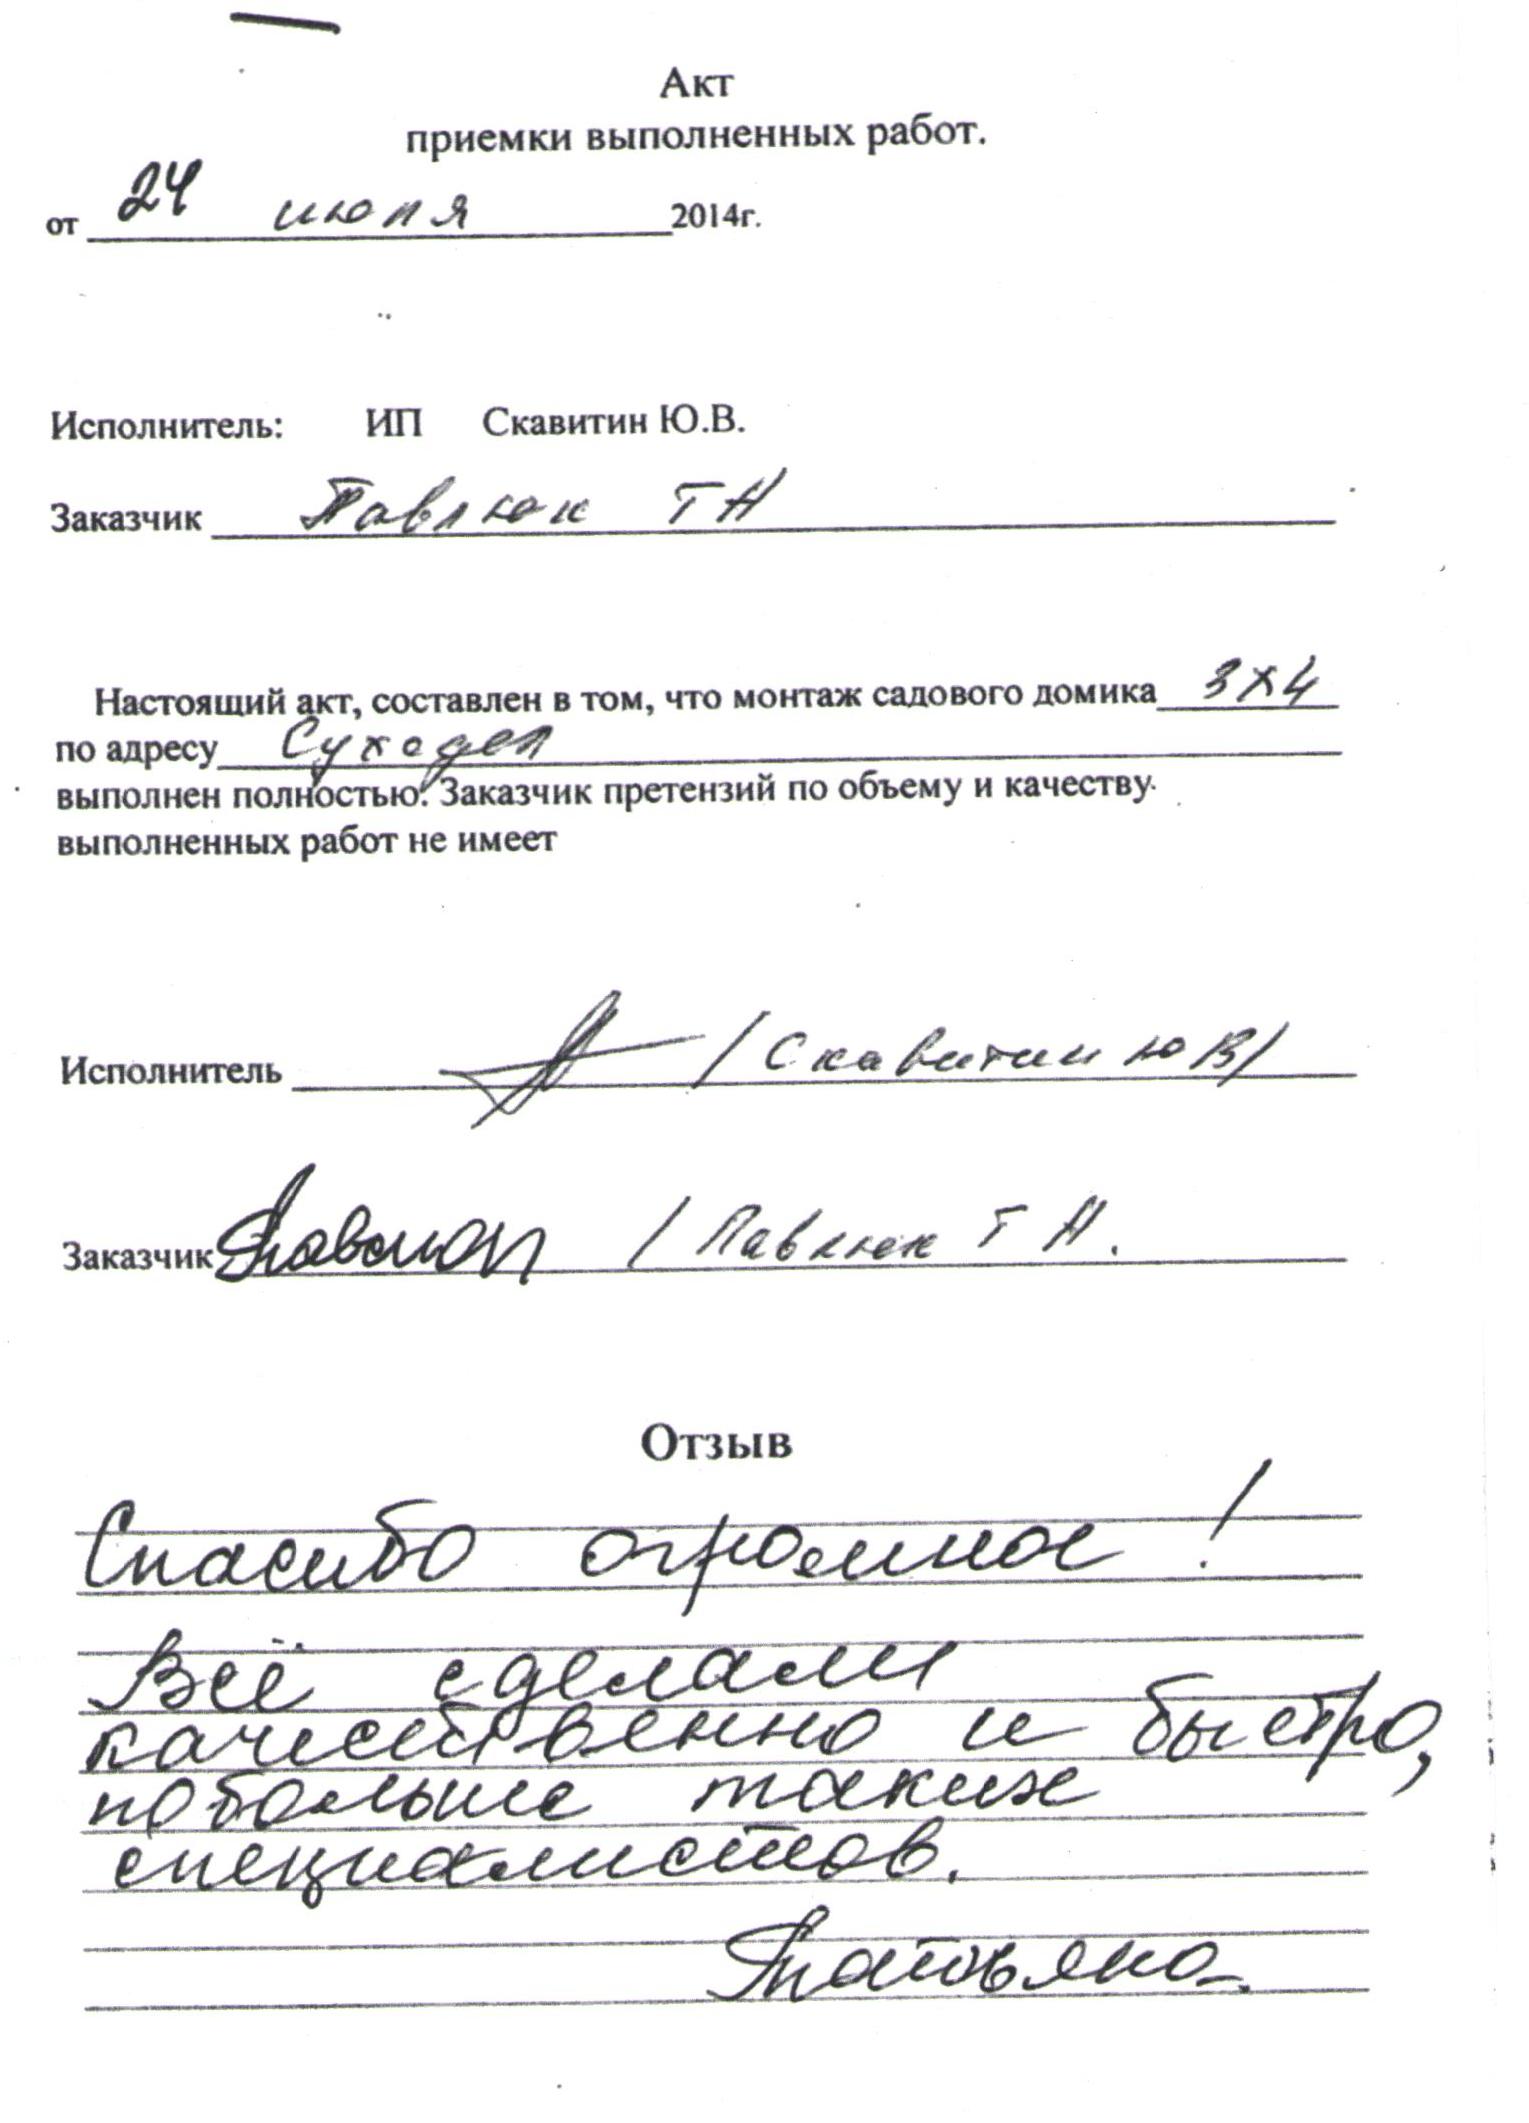 Акт
приемки выполненных работ.
от 24 июля 2014г.
Исполнитель: ИП Скавитин Ю.В.
Заказчик Павлюк Т Н
Настоящий акт, составлен в том, что монтаж садового домика 3х4
по адресу Суходол
выполнен полностью. Заказчик претензий по объему и качеству
выполненных работ не имеет
Исполнитель / Скавитин Ю В/
Заказчик / Павлюк Т Н.
Отзыв
Спасибо огромное!
Всё сделали
качественно и быстро,
побольше таких
специалистов.
Татьяна.